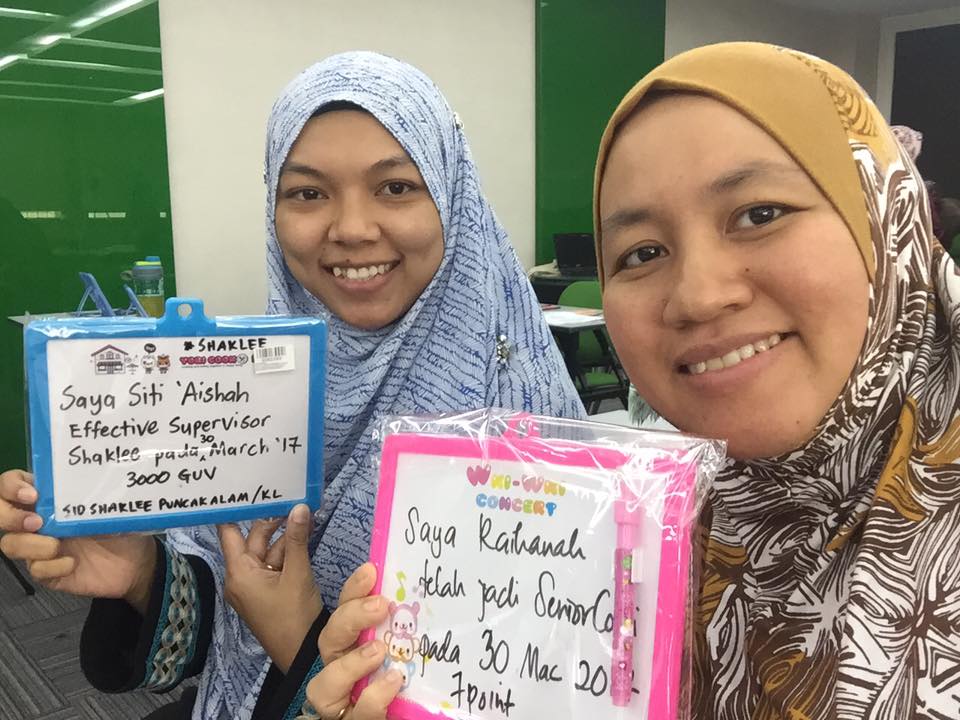 #SHAKLEE
YORI COOK
Saya Siti 'Aishah
Effective Supervisor
Shaklee pada 30 March '17
3000 GUV
SID SHAKLEE PUNCAKALAM/KL
WKI-WKI
CONCERT
Saya Raihanah
telah jadi Senior
pada 30 Mac
7point